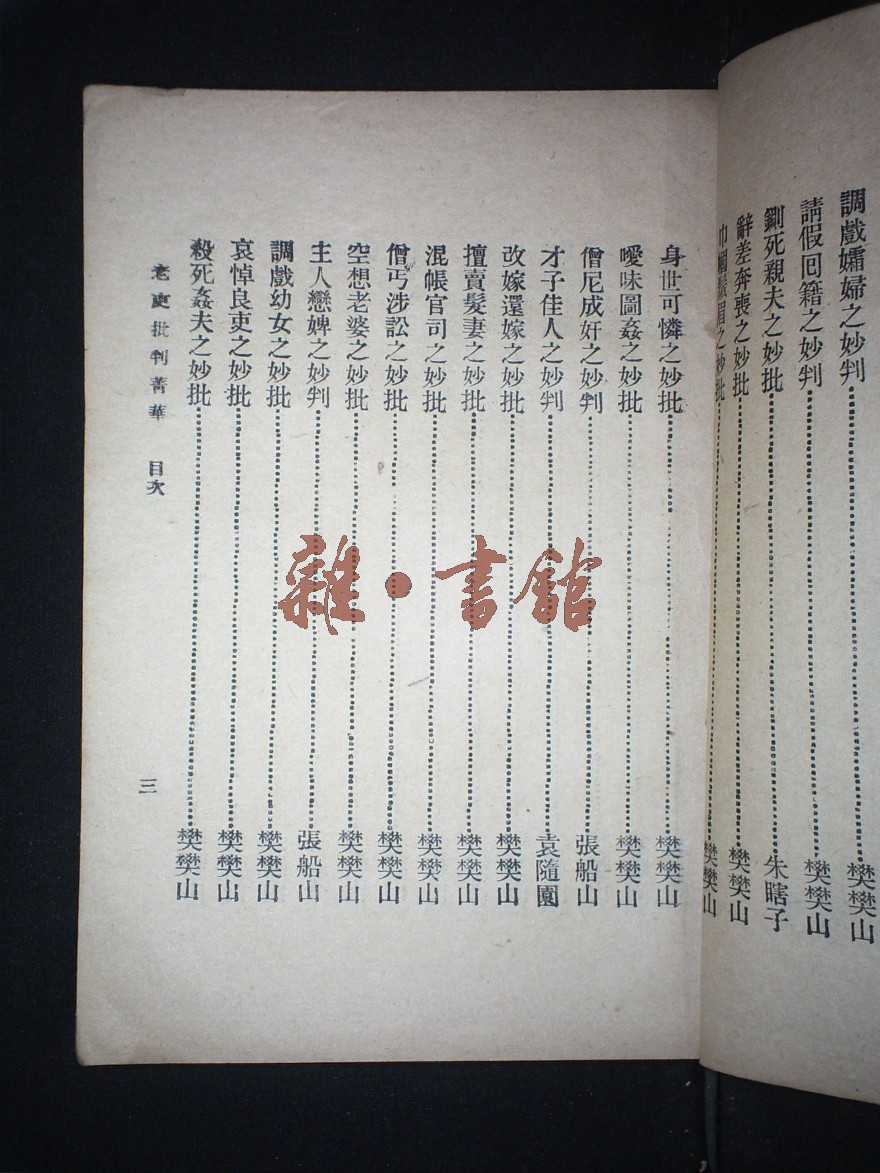 調戲孀婦之妙判 樊樊山
請假回籍之妙判 樊樊山
鍘死親夫之妙批 朱瞎子
辭差奔喪之妙批 樊樊山
巾幗鬚眉之妙批 樊樊山
身世可憐之妙批 樊樊山
曖昧圖姦之妙批 樊樊山
僧尼成奸之妙判 張船山
才子佳人之妙判 袁隨園
改嫁還嫁之妙批 樊樊山
擅賣髮妻之妙批 樊樊山
混帳官司之妙批 樊樊山
僧丐涉訟之妙批 樊樊山
空想老婆之妙批 樊樊山
主人戀婢之妙判 張船山
調戲幼女之妙批 樊樊山
哀悼良吏之妙批 樊樊山
殺死姦夫之妙批 樊樊山
老吏批判菁華 目次 三
雜·書館